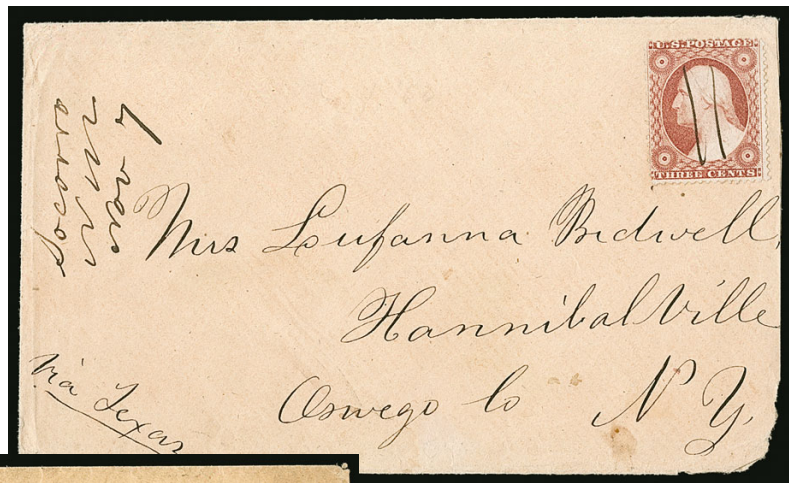 U.S. POSTAGE
THREE CENTS
Mrs Lufanna Bidwell,
HannibalVille
Oswego Co N Y.
via Texas